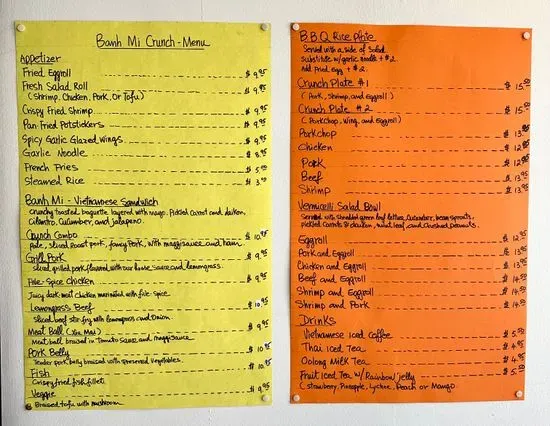 Banh Mi Crunch - Menu
Appetizer
Fried Eggroll $ 9.95
Fresh Salad Roll $ 9.95
(Shrimp, Chicken, Pork, Or Tofu)
Crispy Fried Shrimp $ 9.95
Pan-Fried Potstickers $ 9.95
Spicy Garlic Glazed Wings $ 9.95
Garlic Noodle $ 8.95
French Fries $ 5.00
Steamed Rice $ 3.00
Banh Mi - Vietnamese Sandwich
Crunchy toasted baguette layered with mayo. Pickled carrot and daikon,
Cilantro, Cucumber, and jalapeno.
Crunch Combo $ 10.95
Pate, sliced Roast pork, fancy Pork, with maggi sauce and ham
Grill Pork $ 9.95
sliced grilled pork flavored with our house sauce and lemongrass.
Five-Spice Chicken $ 9.95
Juicy dark meat chicken marinated with five-spice.
Lemongrass Beef $ 10.95
Sliced beef stir-fry with lemongrass and Onion.
Meat Ball (Xiu Mai) $ 9.95
Meat ball braised in tomato sauce and maggi sauce
Pork Belly $ 10.95
Tender pork belly braised with preserved vegetables.
Fish $ 10.95
Crispy fried fish fillet
Veggie $ 9.95
Braised tofu with mushroom
B.B.Q Rice Plate
Served with a side of salad
Substitute w/ garlic noodle + $2.
Add Fried Egg + $2.
Crunch Plate #1 $ 15.
(Pork, Shrimp, and Eggroll)
Crunch Plate #2 $ 15.
(Pork Chop, Wing, and Eggroll)
Pork chop $ 13.95
Chicken $ 12.95
Pork $ 12.95
Beef $ 13.95
Shrimp $ 13.95
Vermicelli Salad Bowl
Served with shredded green leaf lettuce, Cucumber, bean sprouts,
pickled Carrots & daikon, mint leaf, and Crushed Peanuts.
Eggroll $ 12.95
Pork and Eggroll $ 13.95
Chicken and Eggroll $ 13.95
Beef and Eggroll $ 14.50
Shrimp and Eggroll $ 14.50
Shrimp and Pork $ 14.
Drinks
Vietnamese Iced Coffee $ 5.50
Thai Iced Tea $ 4.95
Oolong Milk Tea $ 4.95
Fruit Iced Tea w/ Rainbow jelly $ 5.50
(Strawberry, Pineapple, Lychee, Peach or Mango)